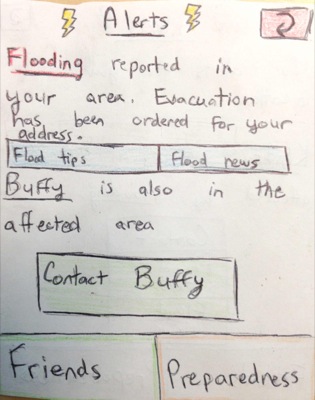 Alerts
Flooding reported in
your area. Evacuation
has been ordered for your
address.
Flood tips Flood news
Buffy is also in the
affected area
Contact Buffy
Friends Preparedness